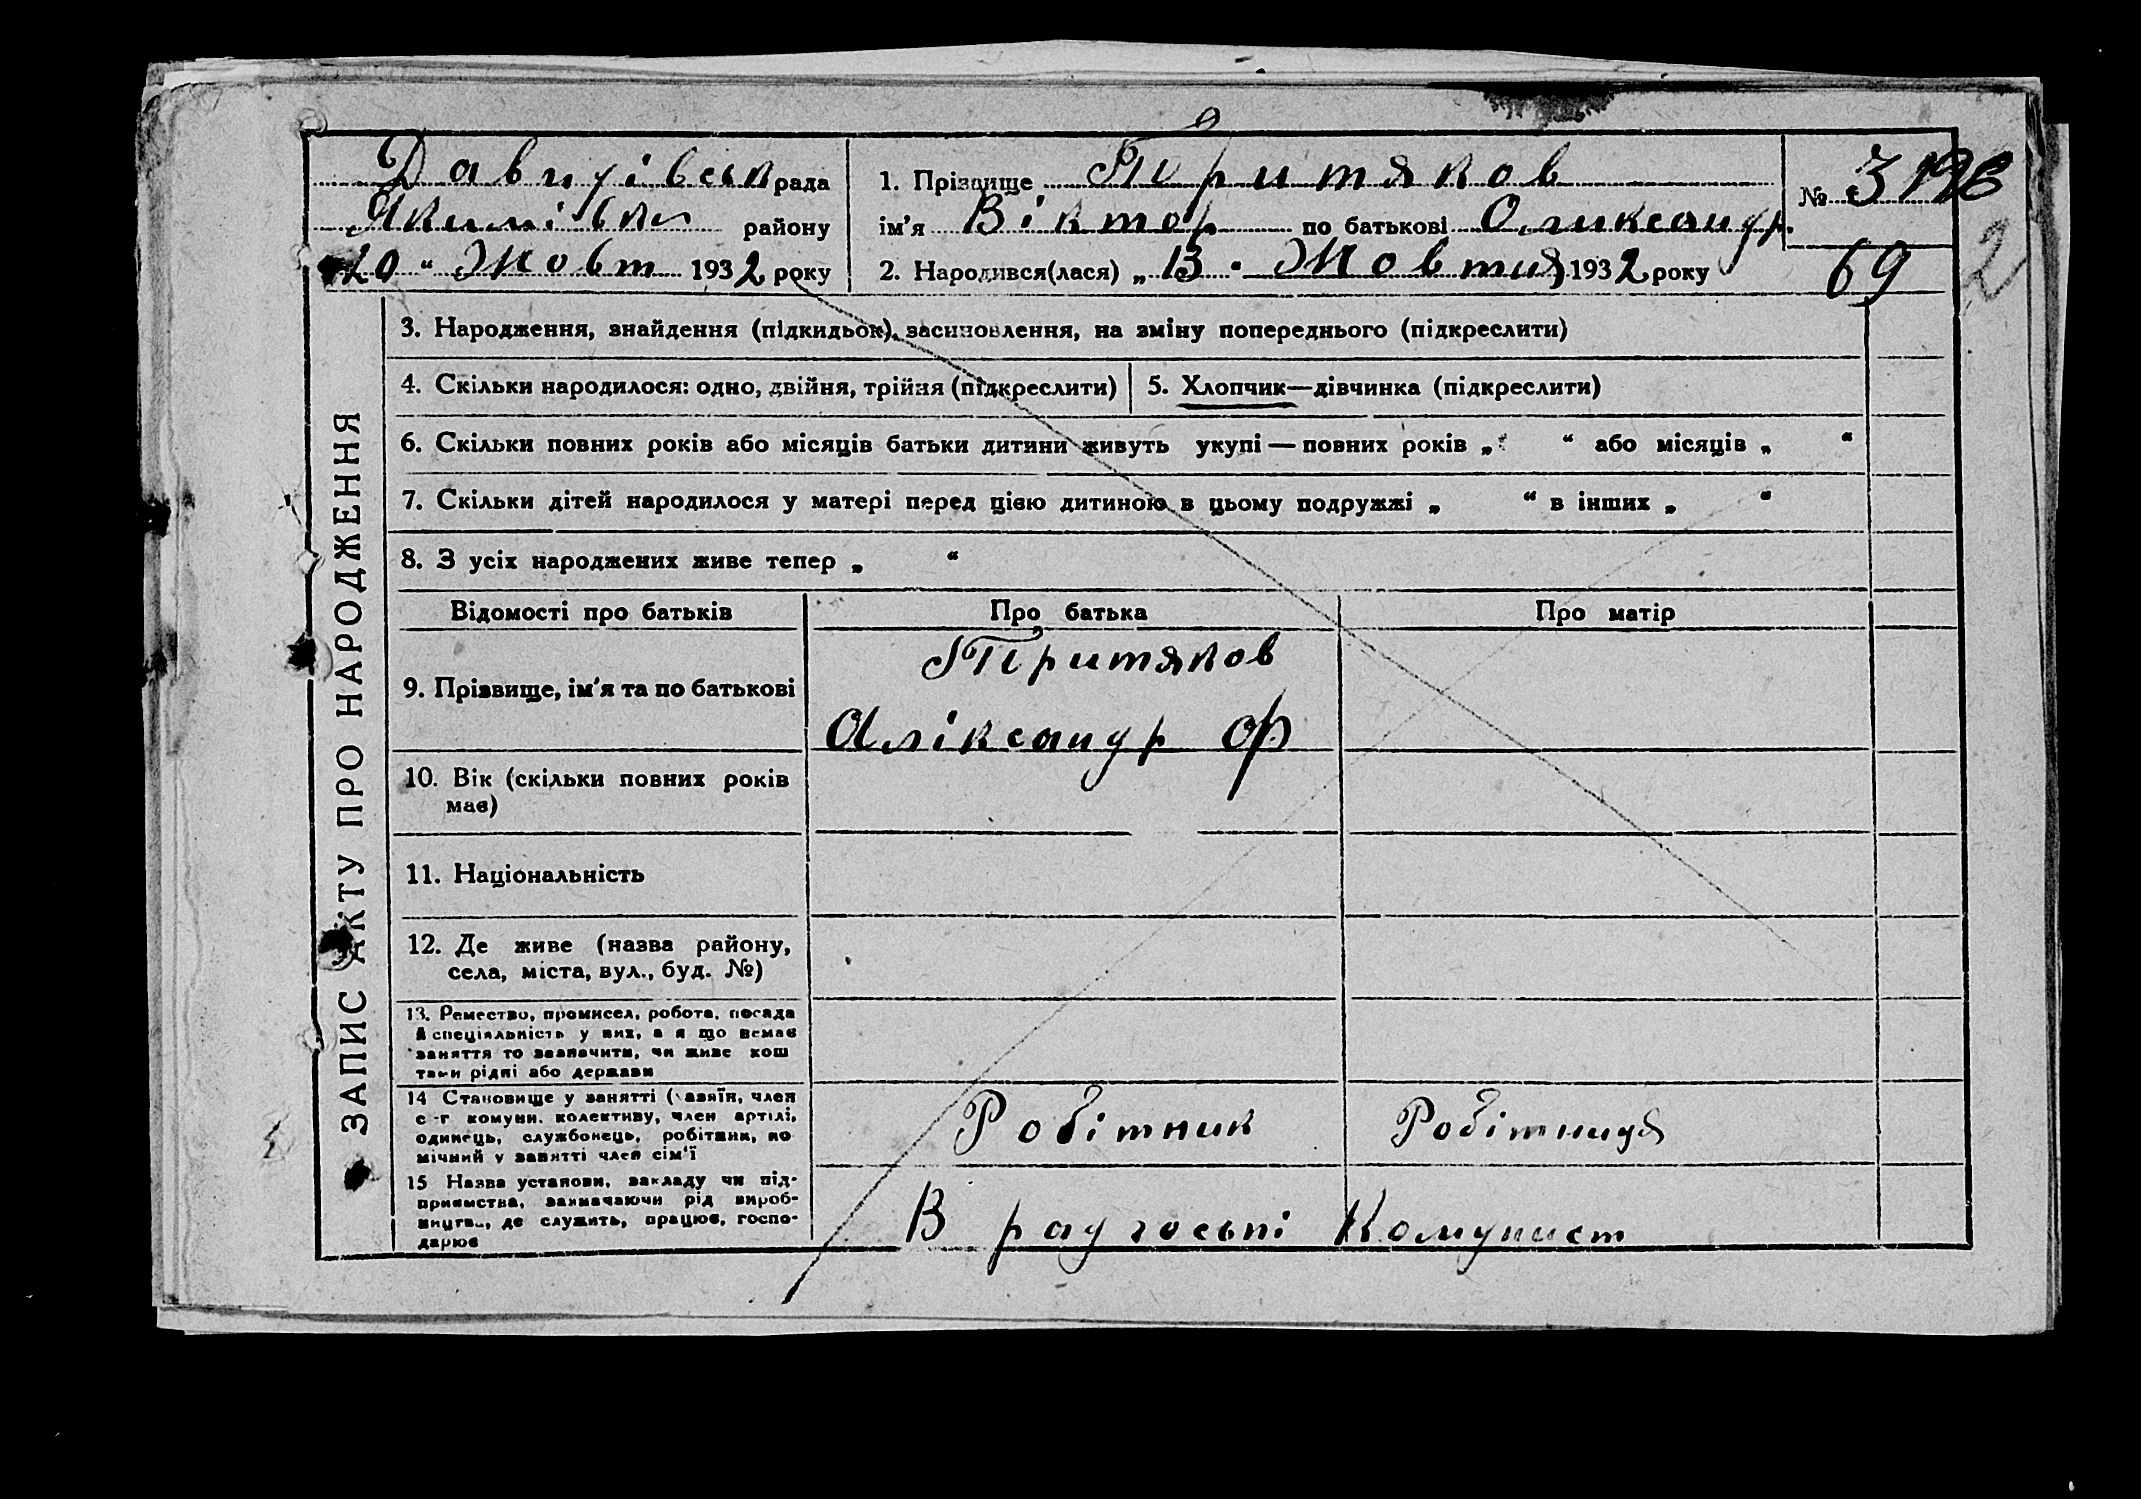 Давидівськ рада
Якимівки району
20 " Жовт 1932 року
1. Прізвище Теритяков
№ 3
ім'я Віктор по батькові Олександр.
2. Народився(лася) „ 13 " Жовтня 1932 року
69
2
ЗАПИС АКТУ ПРО НАРОДЖЕННЯ
3. Народження, знайдення (підкидьок), засиновлення, на зміну попереднього (підкреслити)
4. Скільки народилося: одно, двійня, трійня (підкреслити)
5. Хлопчик—дівчинка (підкреслити)
6. Скільки повних років або місяців батьки дитини живуть укупі — повних років „ “ або місяців „ “
7. Скільки дітей народилося у матері перед цією дитиною в цьому подружжі „ “ в інших „ “
8. З усіх народжених живе тепер „ “
Відомості про батьків
Про батька
Про матір
9. Прізвище, ім'я та по батькові
Теритяков
Аліксандр Ф
10. Вік (скільки повних років
має)
11. Національність
12. Де живе (назва району,
села, міста, вул., буд. №)
13. Ремество, промисел, робота, посада
й спеціяльність у них, а я що немає
заняття то зазначити, чи живе кош
тами рідні або держави
14 Становище у занятті (хазяїн, член
с-г комуни, колективу, член артілі,
одинець, службовець, робітник, по
мічний у занятті член сім'ї
Робітник
Робітниця
15 Назва установи, закладу чи під-
приємства, зазначаючи рід вироб-
ництва, де служить, працює, госпо-
дарює
В радгоспі Комунист